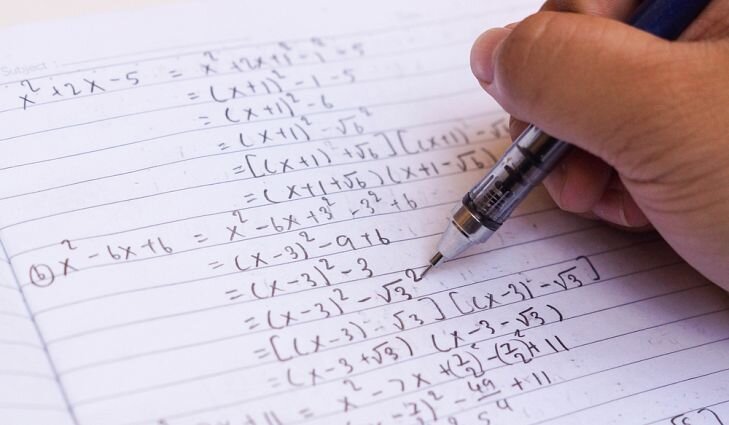 Subject:
x² + 2x - 5 = x² + 2x + 1² - 1² - 5
= (x+1)² - 1 - 5
= (x+1)² - 6
= (x+1)² - √6²
= [(x+1) + √6] [(x+1) - √6
= (x+1+√6) (x+1-√6)
ⓑ x² - 6x + 6 = x² - 6x + 3² - 3² + 6
= (x-3)² - 9 + 6
= (x-3)² - 3
= (x-3)² - √3²
= [(x-3) - √3] [(x-3) - √3]
= (x-3+√3) (x-3-√3)
x + 11 = x² - 7x + (7/2)² - (7/2)² + 11
- 7/2)² - 49/4 + 11